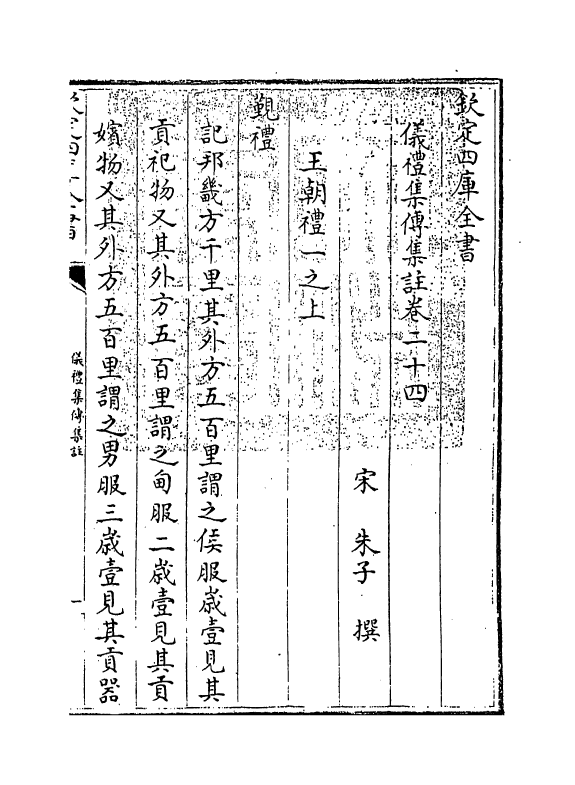 欽定四庫全書
儀禮集傳集註卷二十四
宋 朱子 撰
王朝禮一之上
覲禮
記邦畿方千里其外方五百里謂之侯服歲壹見其
貢祀物又其外方五百里謂之甸服二歲壹見其貢
嬪物又其外方五百里謂之男服三歲壹見其貢器
儀禮集傳集註
一